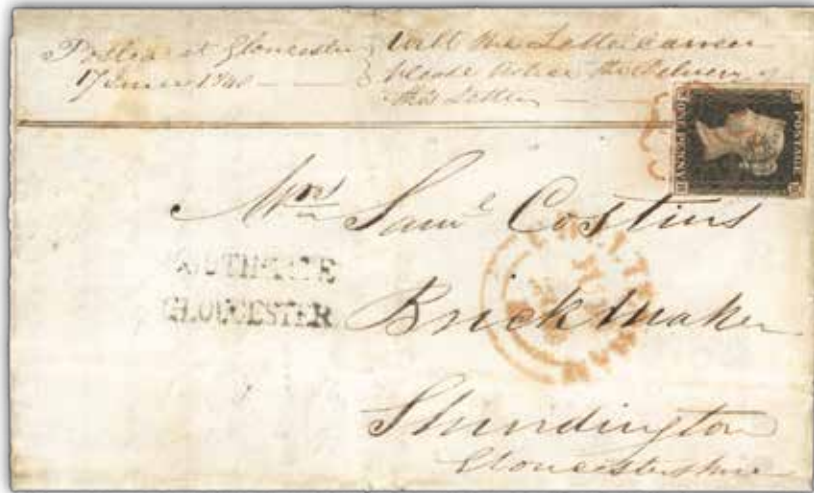 Posted at Gloucester
17 June 1840
will the Letter carrier
please notice the Delivery of
this Letter
POSTAGE
ONE PENNY
Mrs Saml Costins
SOUTHGATE
GLOUCESTER
Brick Maker
Shurdington
Gloucestershire